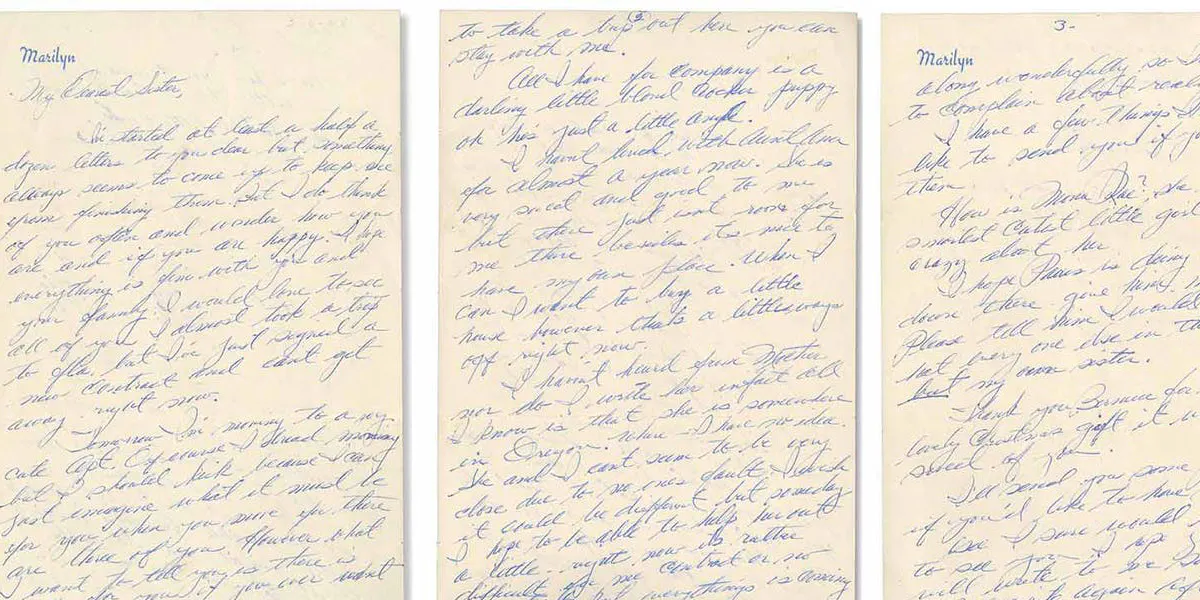 Marilyn
My Dearest Sister,
I'v started at least a half a
dozen letters to you dear but something
always seems to come up to keep me
from finishing them. But I do think
of you often and wonder how you
are and if you are happy. I hope
everything is fine with you and
your family. I would love to see
all of you. I almost took a trip
to Fla. but I've just signed a
new contract and can't get
away right now.
Tomorrow I'm moving to a very
cute Apt. Of course I dread moving
but I should kick because I can
just imagine what it must be
for you when you move for there
are three of you. However what
I want to tell you is there is
for you if you ever want
2
to take a trip out here you can
stay with me.
All I have for company is a
darling little blond Cocker puppy.
oh he's just a little angle.
I havn't lived with Aunt Ana
for almost a year now. She is
very sweet and good to me
but there just isn't room for
me there besides its nice to
have my own place. When I
can I want to buy a little
house however that's a little ways
off right now.
I havn't heard from Mother
nor do I write her infact all
I know is that she is somewhere
in Oregon. where I have no idea.
She and I can't seem to be very
close due to no ones fault. I wish
it could be different but someday
I hope to be able to help her out
a little. right now its rather
difficult for me
but everything is coming
3-
Marilyn
along wonderfully so I
to complain about
I have a few things I
like to send you if y
them.
How is Mona Rae? She
smartest cutest little girl
crazy about her
I hope Paris is doing
down there give him
Please tell him I would
not every one else in th
but my own sister.
Thank you Bernice for
lovely Cristmas gift it w
sweet of you.
I'll send you some
if you'd like to have
Gee I sure would
to see you I hope
will write to me
again